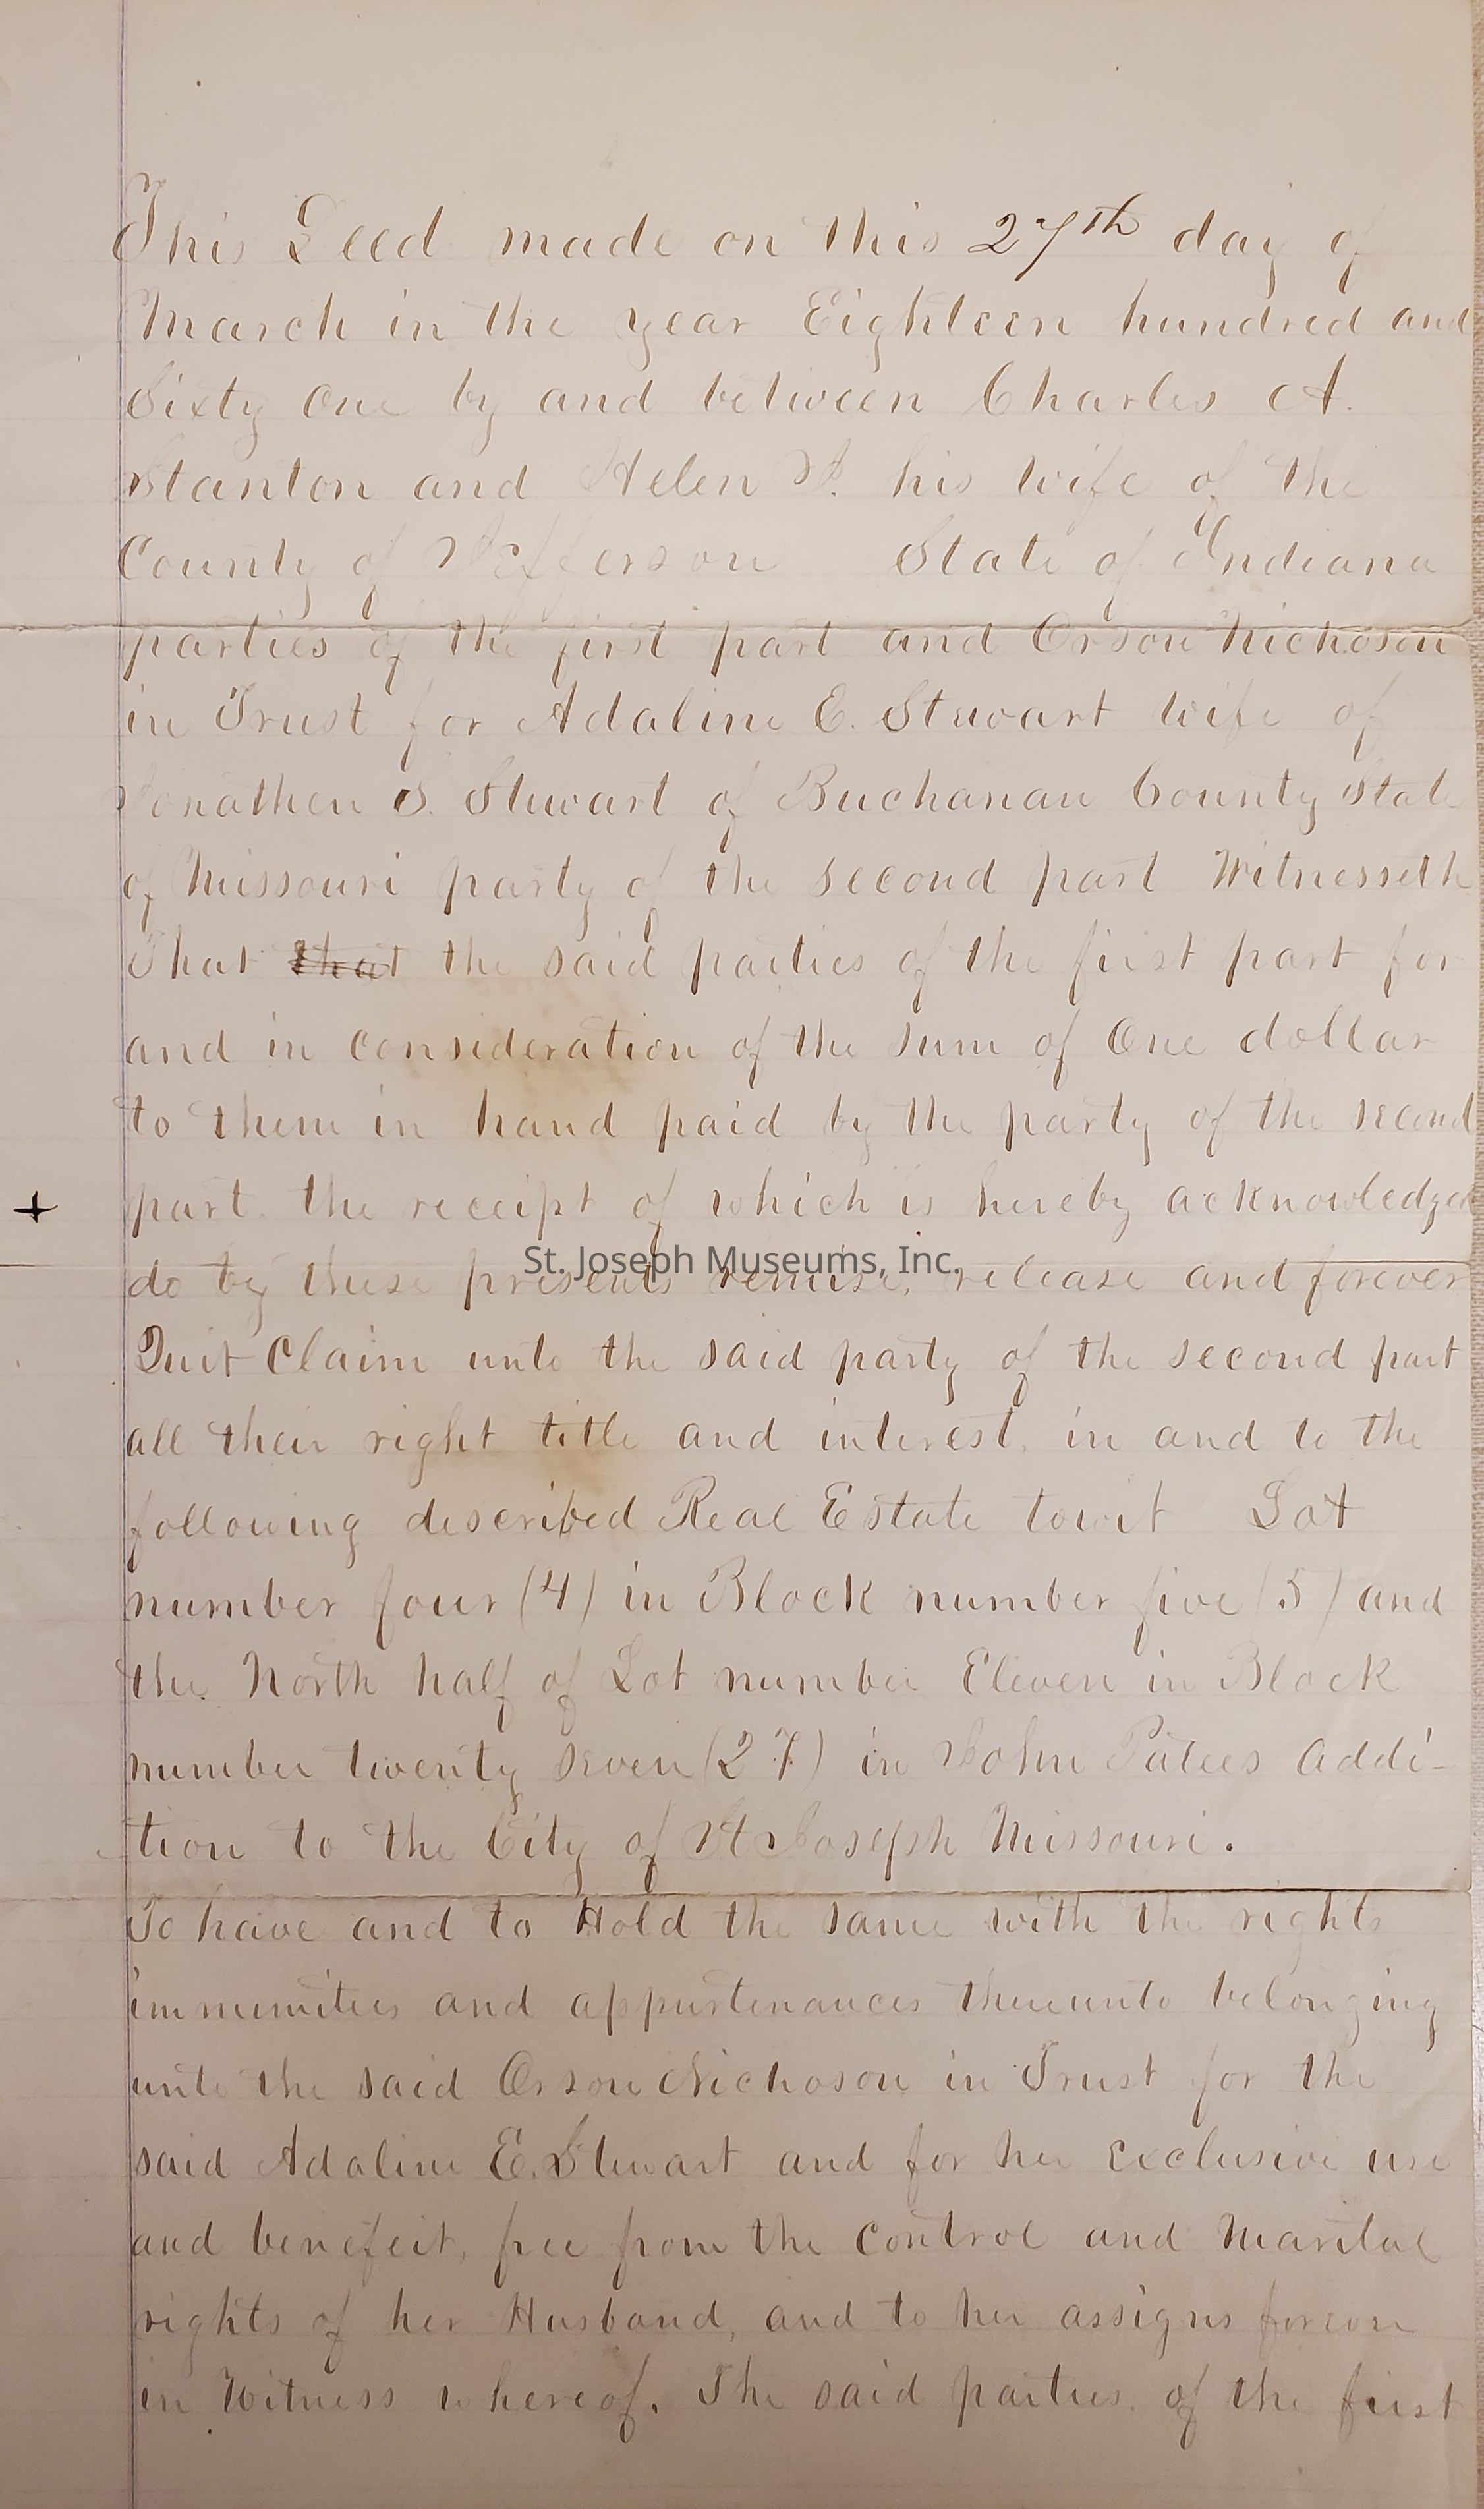 This Deed made on this 27th day of
March in the year Eighteen hundred and
Sixty One by and between Charles A.
Stanton and Helen his wife of the
County of Jefferson State of Indiana
parties of the first part and Orson Nichoson
in Trust for Adaline E. Stewart wife of
Jonathen S. Stewart of Buchanan County State
of Missouri party of the second part Witnesseth
That that the said parties of the first part for
and in consideration of the sum of One dollar
to them in hand paid by the party of the second
+ part. the receipt of which is hereby acknowledged
St. Joseph Museums, Inc.
do by these presents remise, release and forever
Quit Claim unto the said party of the second part
all their right title and interest, in and to the
following described Real Estate towit Lot
number four (4) in Block number five (5) and
the North half of Lot number Eleven in Block
number twenty seven (27) in John Patees Addi-
tion to the City of St Joseph Missouri.
To have and to Hold the same with the rights
immunities and appurtenances thereunto belonging
unto the said Orson Nichoson in Trust for the
said Adaline E. Stewart and for her exclusive use
and benefeit, free from the control and Marital
rights of her Husband, and to her assigns forever
in Witness whereof. The said parties of the first